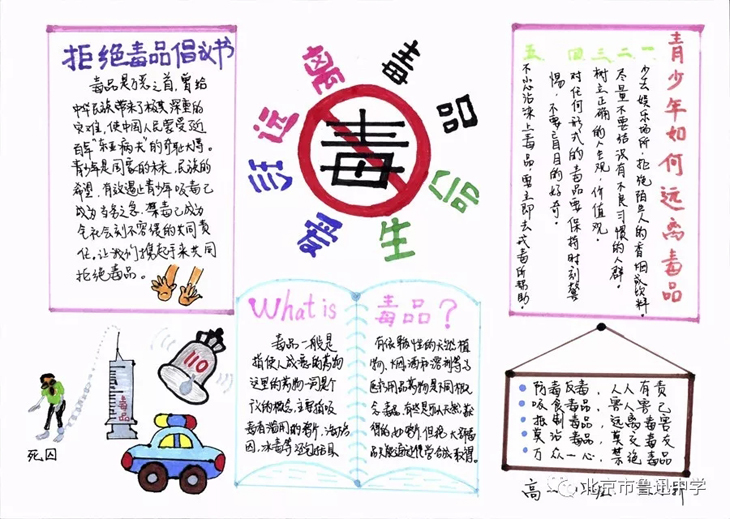 拒绝毒品倡议书
毒品是万恶之首,曾给
中华民族带来了极其深重的
灾难,使中国人民蒙受近
百年"东亚病夫"的奇耻大辱。
青少年是国家的未来,民族的
希望,有效遏止青少年吸毒已
成为当务之急,禁毒已成为
全社会刻不容缓的共同责
任。让我们携起手来共同
拒绝毒品。
远离毒品
珍爱生命
毒
青少年如何远离毒品
一 少去娱乐场所,拒绝陌生人的香烟或饮料。
二 尽量不要结识有不良习惯的人群。
三 树立正确的人生观、价值观。
四 对任何形式的毒品要保持时刻警
惕,不要盲目的好奇。
五 不小心沾染上毒品要立即去戒毒所帮助。
110
毒品
死囚
What is 毒品?
毒品一般是
指使人成瘾的药物
这里的药物一词是个
广义的概念,主要指吸
毒者滥用的鸦片、海洛
因、冰毒等 还包括具
有依赖性的天然植
物、烟、酒和溶剂等与
医疗用品药物是不同概
念毒品,有些是可以天然获
得的如鸦片 但绝大部分毒
品只能通过化学合成取得。
防毒反毒,人人有责
吸食毒品,害人害己
抵制毒品,远离毒害
莫沾毒品,莫交毒友
万众一心,禁绝毒品
高一
北京市鲁迅中学